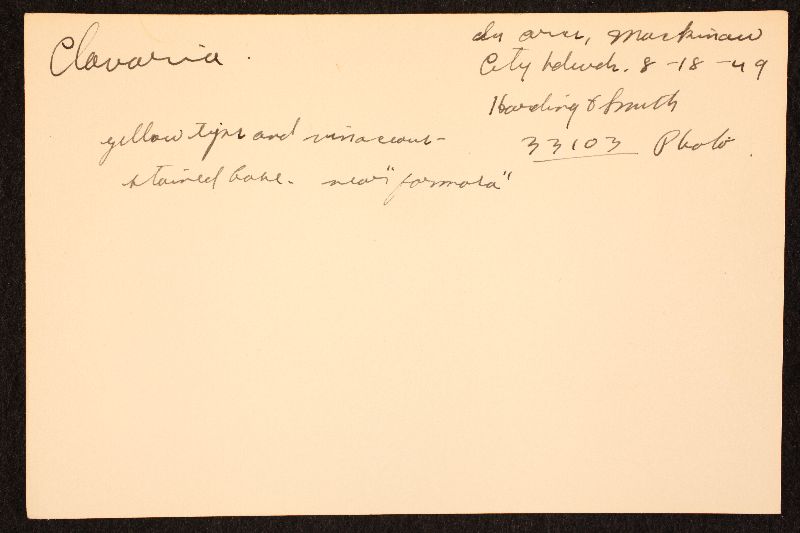 Clavaria.
On area, Mackinaw
City hdwds. 8-18-49
Harding & Smith
33103 Photo.
yellow tips and vinaceous-
stained base. near "formosa"